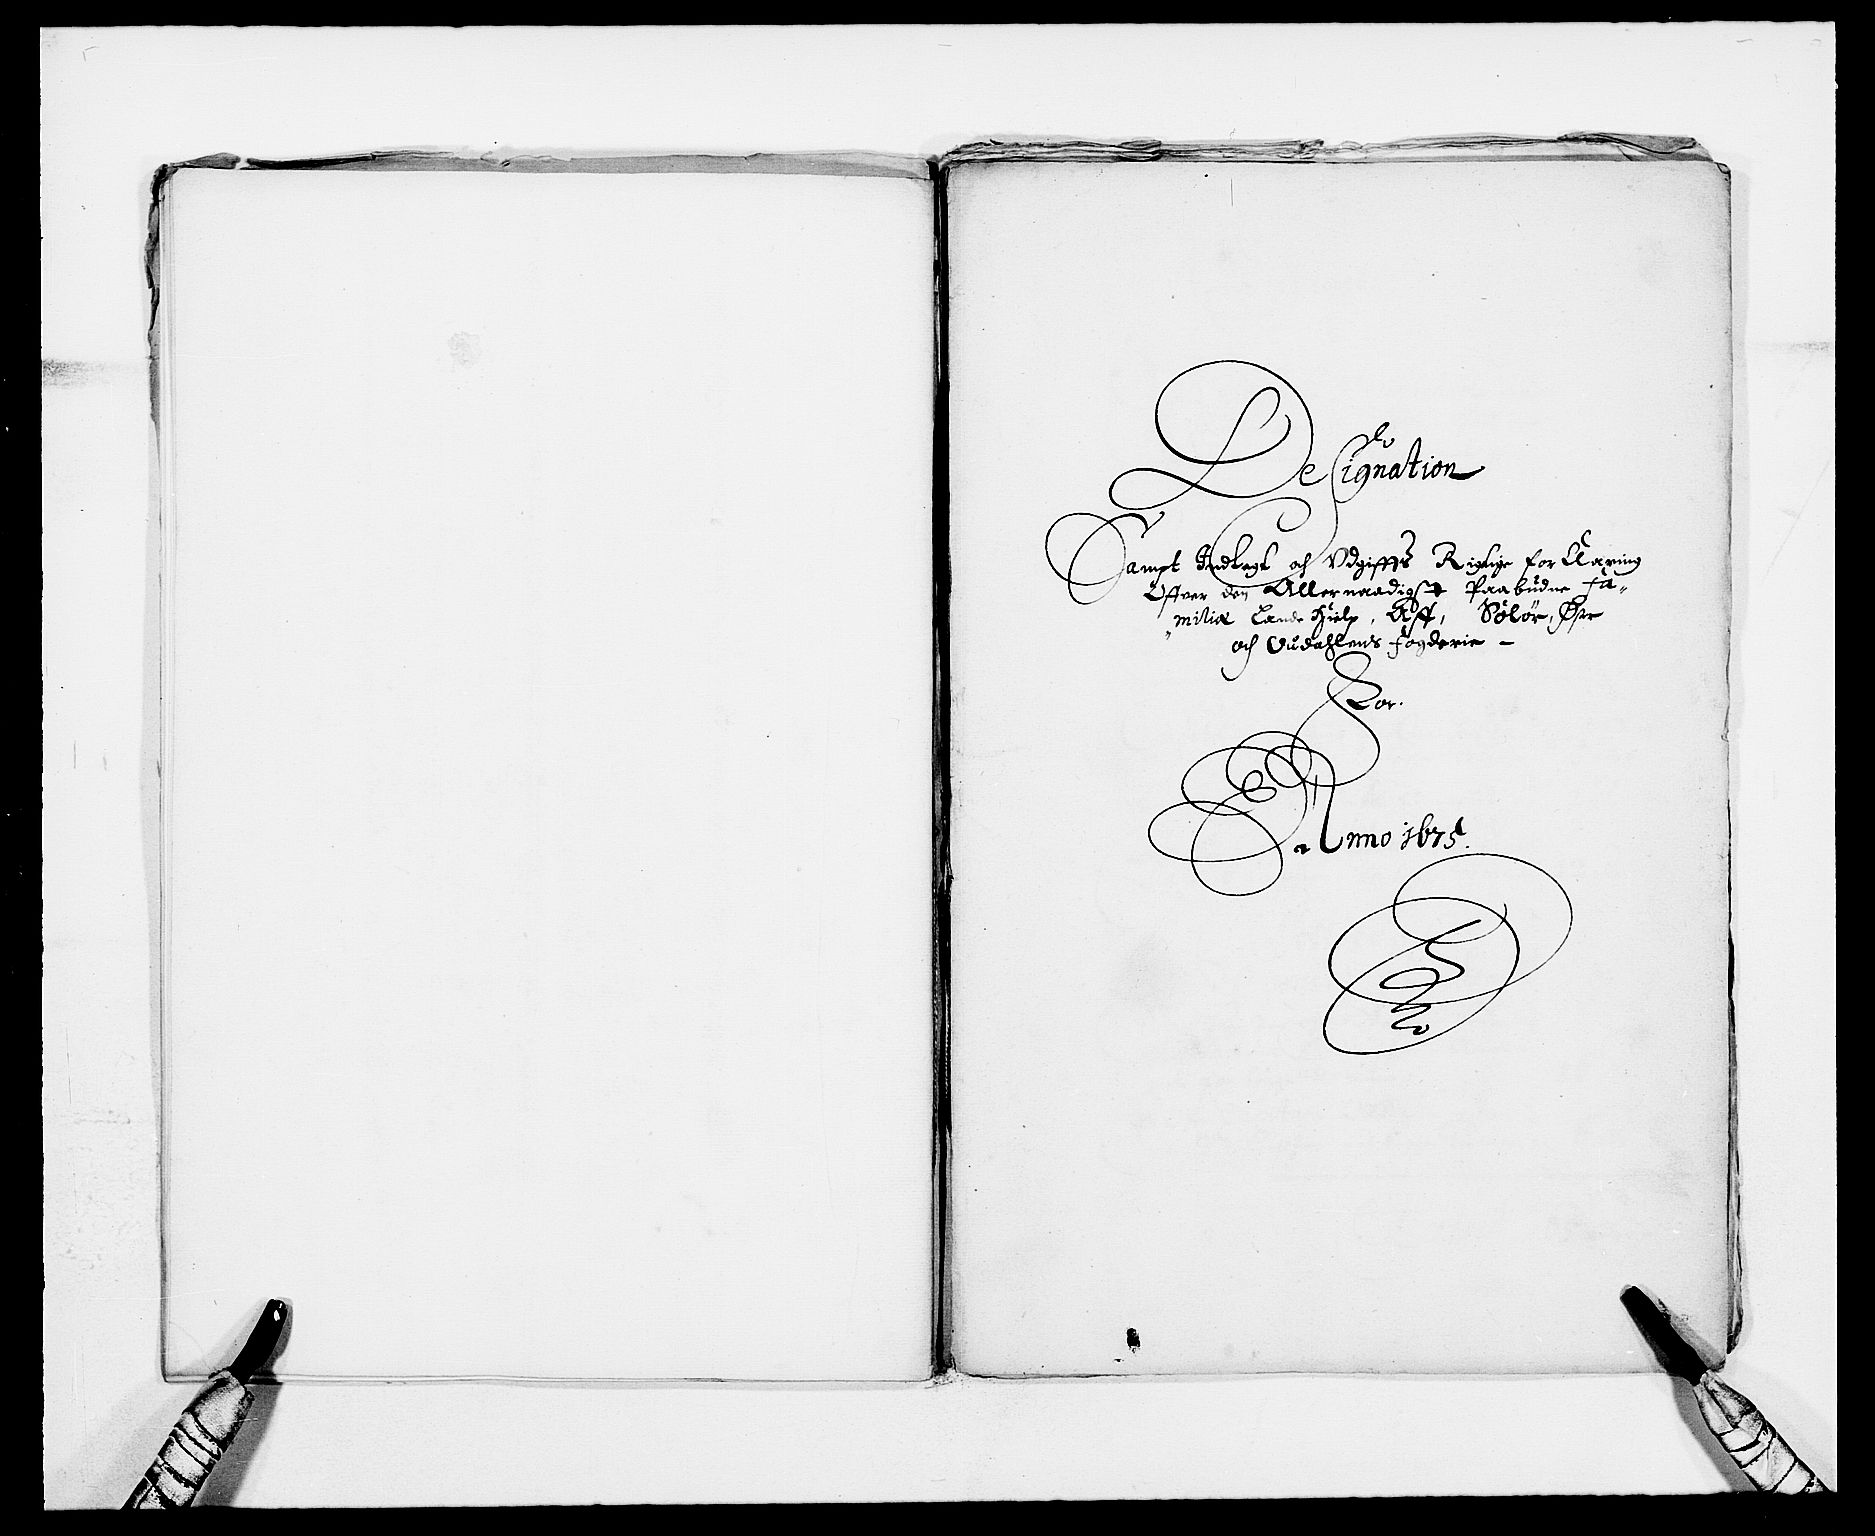 Designation
Sampt Indtegt och Vdgifftz Rigtige forClaring
Offver den Allernaadigst Paabudne fa„
„miliæ Lande hielp, Aff, Solør, Øster
och Oudahlens fogderie –
For.
Anno 1675.